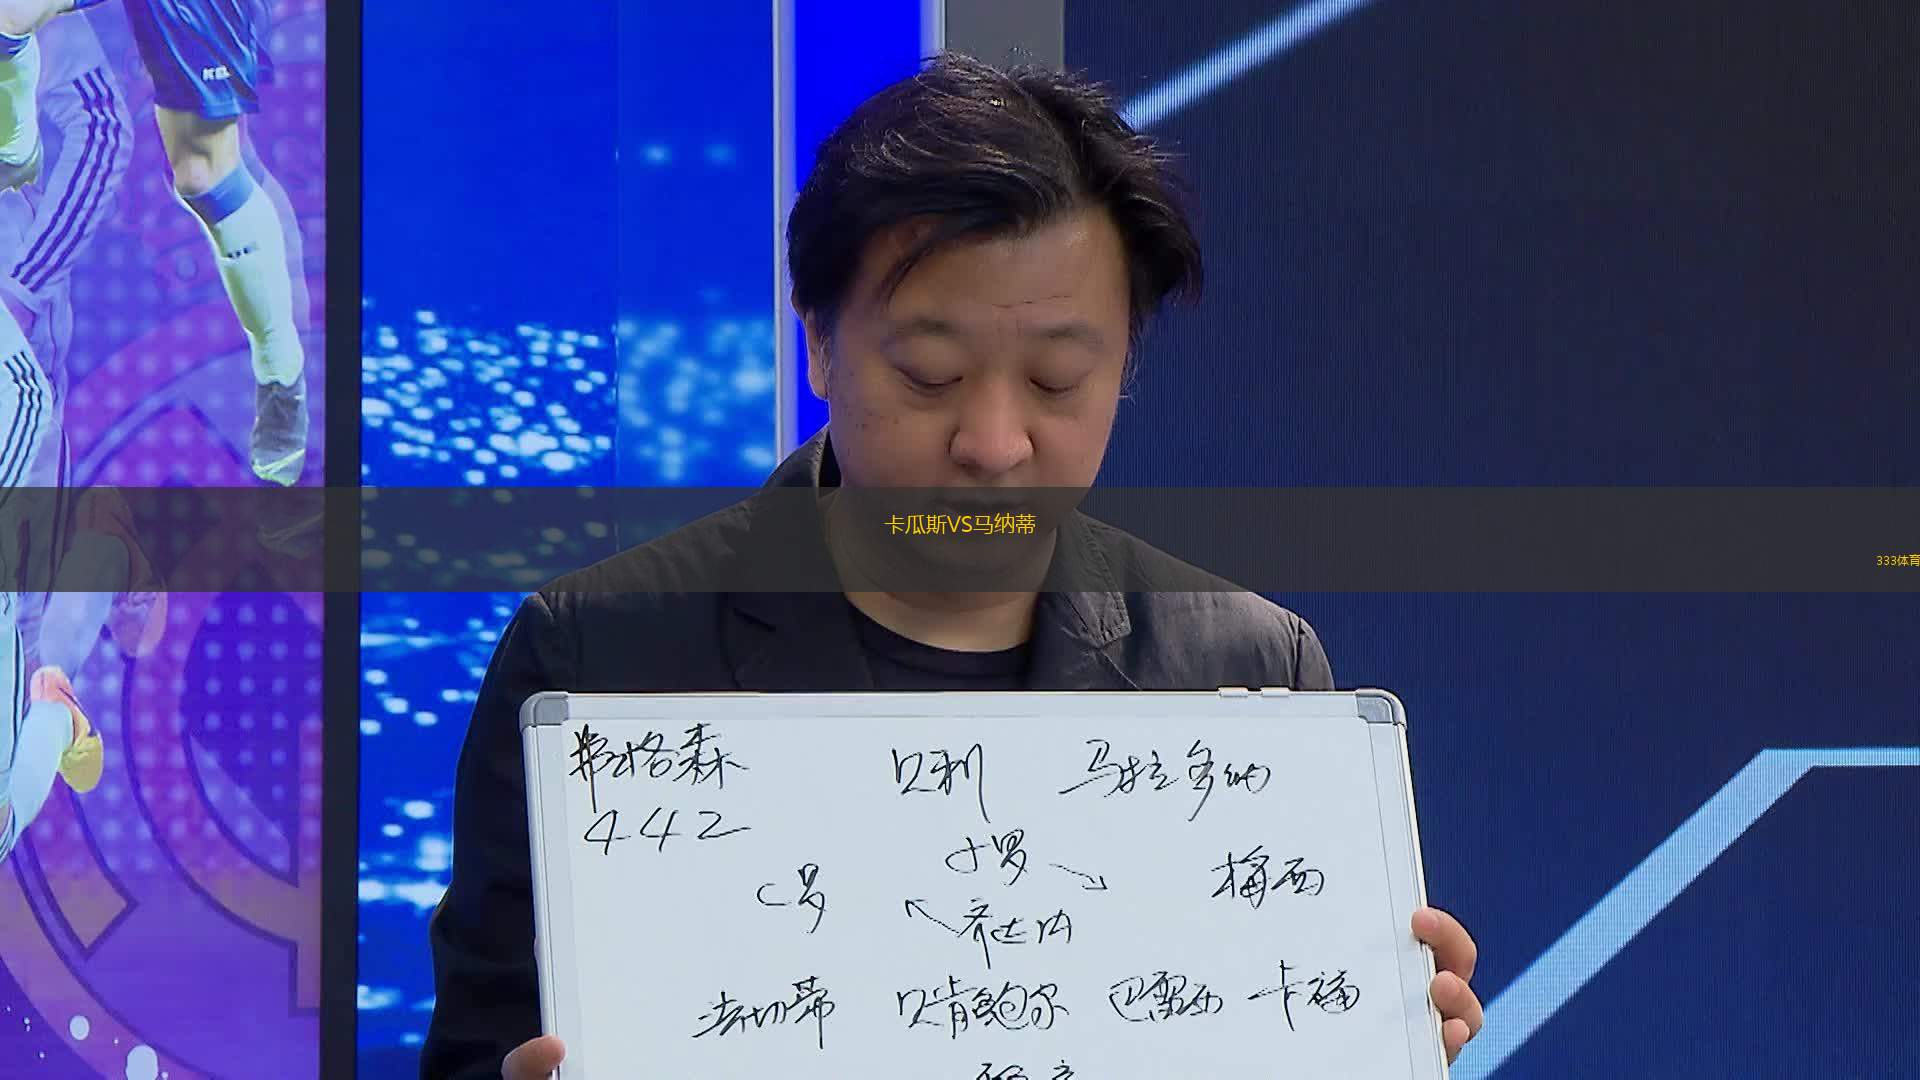 卡瓜斯VS马纳蒂
333体育
弗格森 贝利 马拉多纳
442
小罗
C罗 梅西
齐达内
法切蒂 贝肯鲍尔 巴雷西 卡福